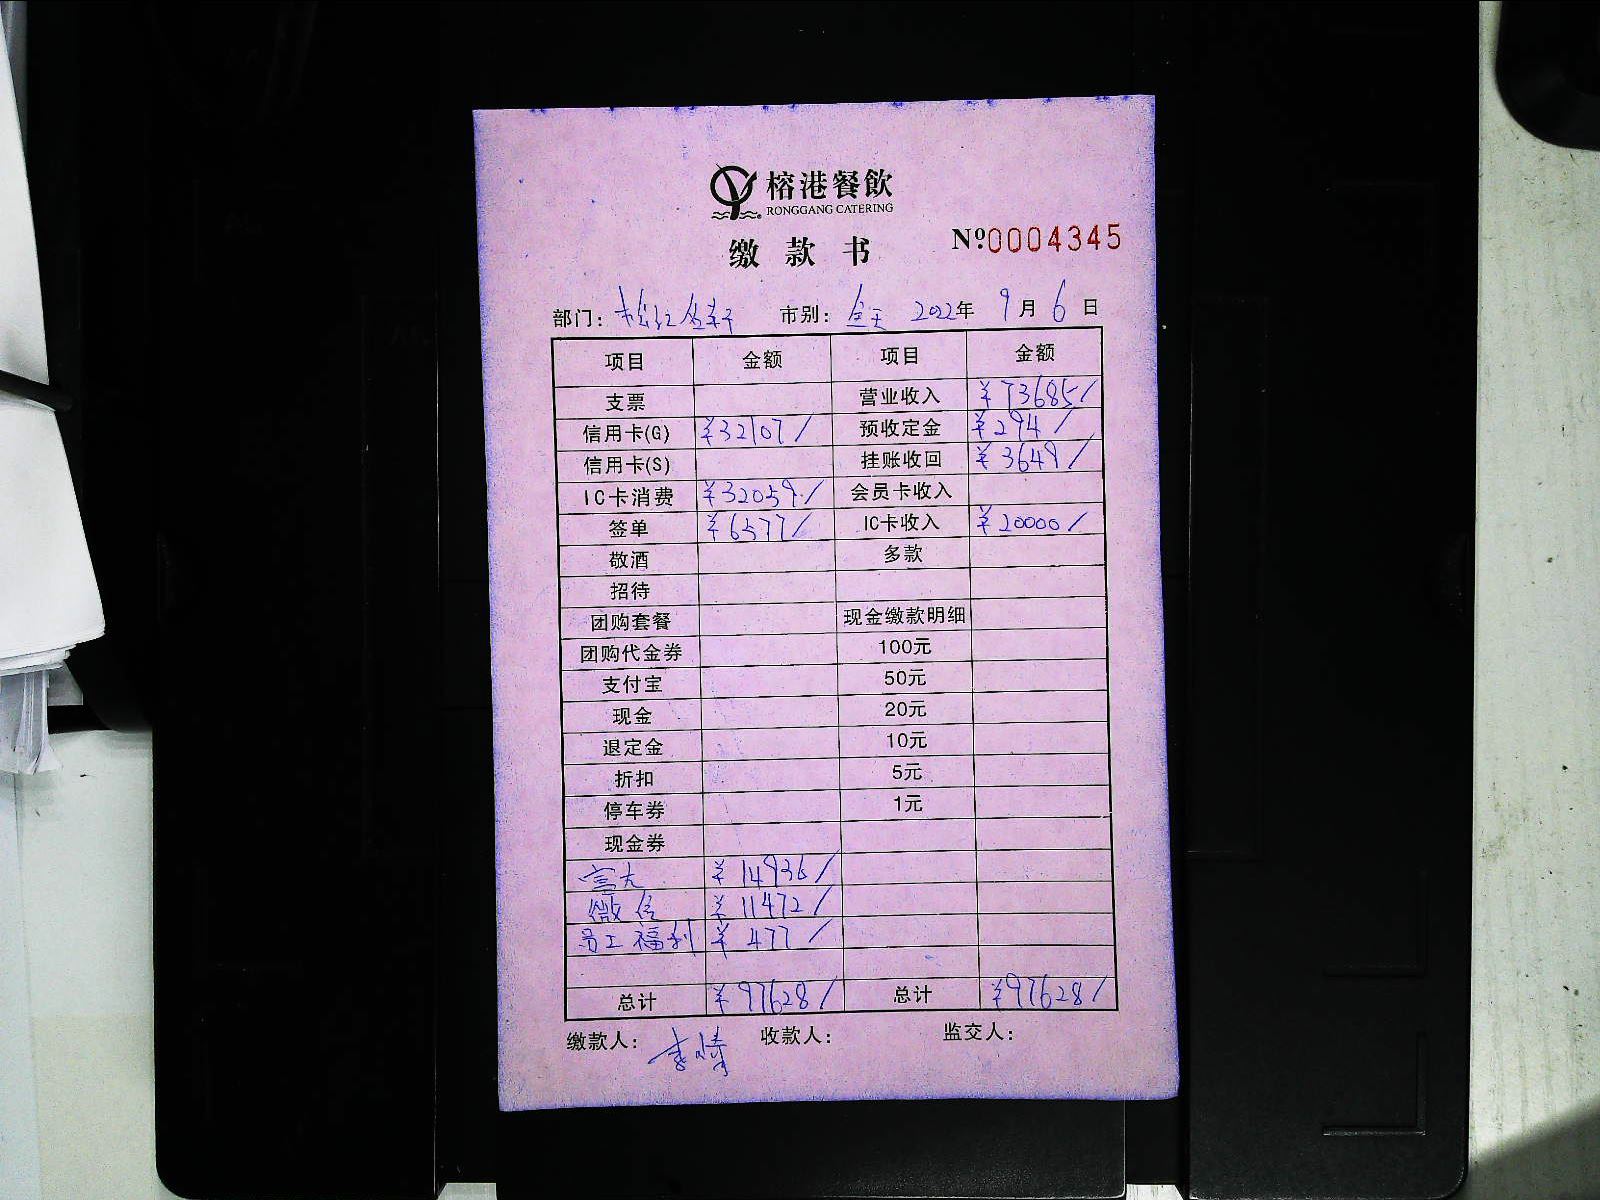 榕港餐飲
RONGGANG CATERING
缴款书 Nº0004345
部门: 市别: 全天 2022年 9月 6日
项目 金额 项目 金额
支票 营业收入 ¥73685/
信用卡(G) ¥32107/ 预收定金 ¥294/
信用卡(S) 挂账收回 ¥3649/
IC卡消费 ¥32059./ 会员卡收入
签单 ¥6577/ IC卡收入 ¥20000/
敬酒 多款
招待
团购套餐 现金缴款明细
团购代金券 100元
支付宝 50元
现金 20元
退定金 10元
折扣 5元
停车券 1元
现金券
¥14936/
微信 ¥11472/
员工福利 ¥477/
总计 ¥97628/ 总计 ¥97628/
缴款人: 收款人: 监交人: